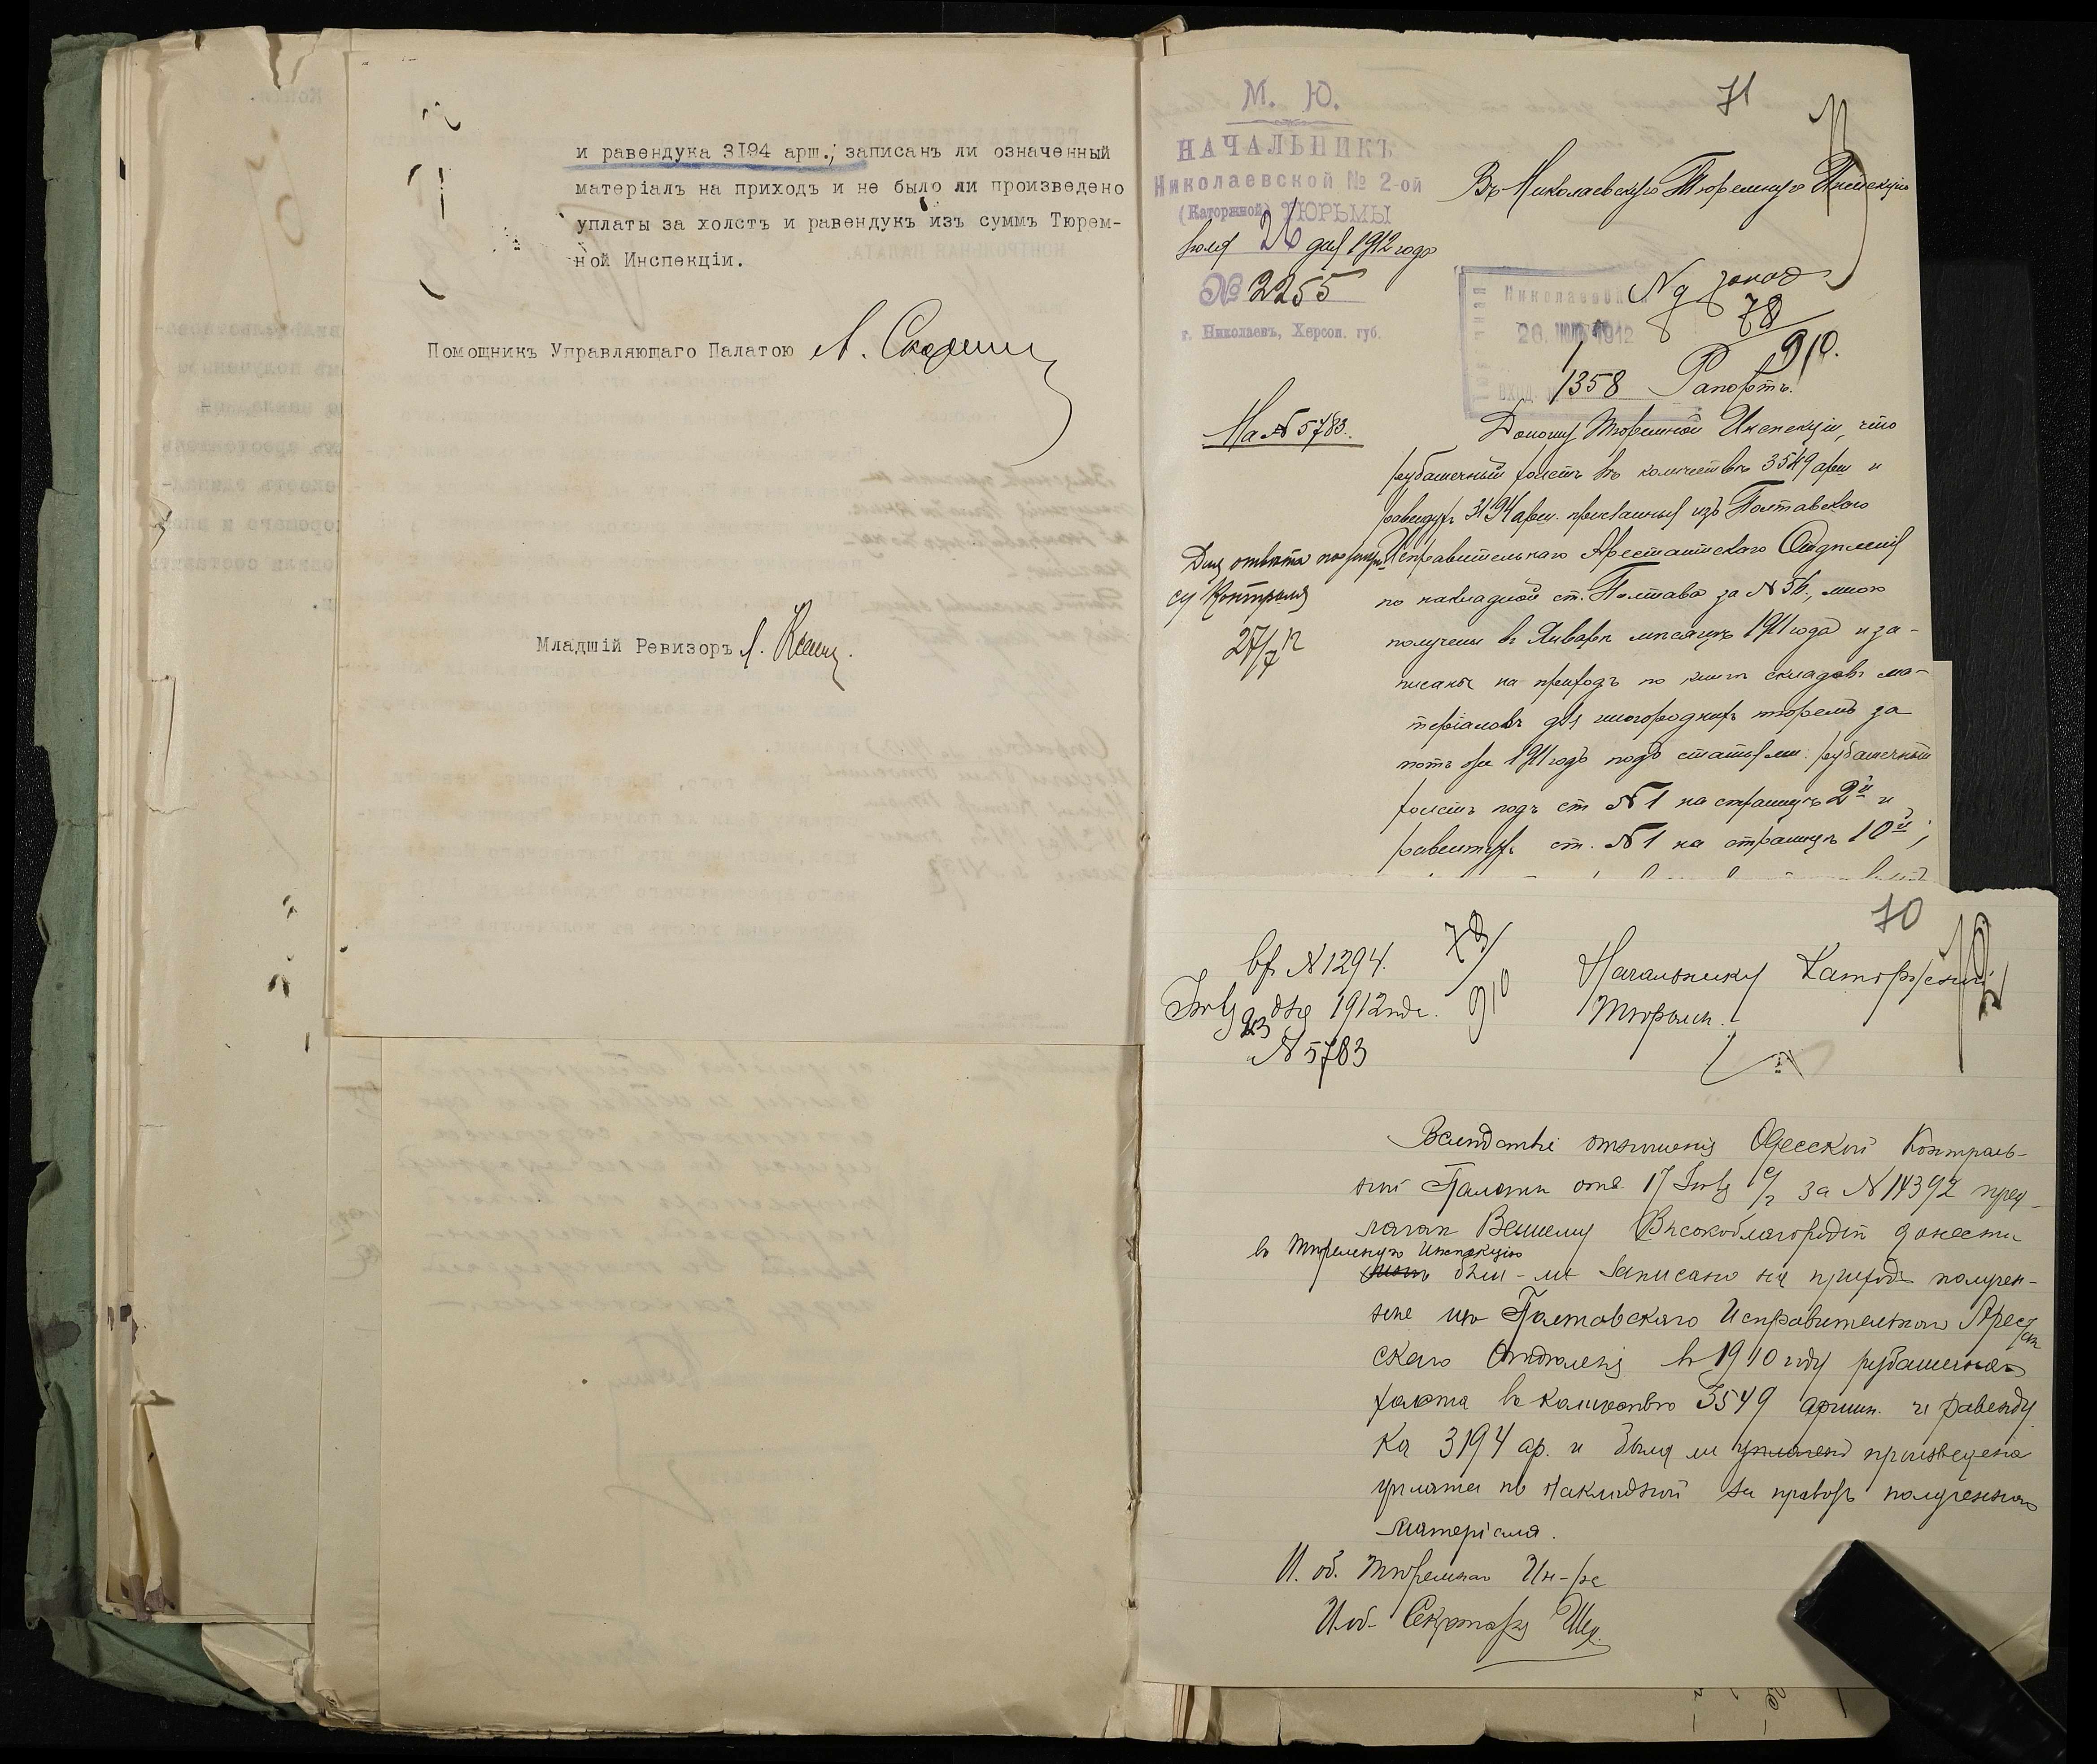 и равендука 3194 арш.; записанъ ли означенный
матеріалъ на приходъ и не было ли произведено
уплаты за холстъ и равендукъ изъ суммъ Тюрем-
ной Инспекціи.
Помощникъ Управляющаго Палатою
Младшій Ревизоръ
71
М. Ю.
НАЧАЛЬНИКЪ
Николаевской № 2-ой
(Каторжной) ТЮРЬМЫ
Іюля 26 дня 1912 года
№ 2255
г. Николаевъ, Херсон. губ.
Въ Николаевскую Тюремную Инспекцію
26 ІЮЛ 1912
1358
78
910.
Рапортъ.
На № 5783.
Доношу Тюремной Инспекціи, что
рубашечный холстъ въ количествѣ 3549 арш и
равендукъ 3194 арш. присланный изъ Полтавскаго
Исправительнаго Арестантскаго Отдѣленія
по накладной ст. Полтава за № 56, мною
получены въ Январѣ мѣсяцѣ 1911 года и за-
писаны на приходъ по книгѣ складовъ ма-
теріаловъ для иногороднихъ тюремъ за
тотъ же 1911 годъ подъ статьями: рубашечный
холстъ подъ ст № 1 на страницѣ 2й и
равендукъ ст. № 1 на страницѣ 10й;
Для отвѣта по
Контроля
27/7 12
70
вх № 1294.
78/910
Іюля 23 дня 1912 года.
№ 5783
Начальнику Каторжной
Тюрьмы.
Вслѣдствіе отношенія Одесской Контроль-
ной Палаты отъ 17 Іюля с/г за № 14392 пред-
лагаю Вашему Высокоблагородію донести
въ Тюремную Инспекцію
были-ли записано на приходъ получен-
ные изъ Полтавскаго Исправительнаго Арестан
скаго Отдѣленія въ 1910 году рубашечнаго
холста въ количествѣ 3549 аршин. и равенду
ка 3194 ар. и была ли уплачено произведена
уплата по накладной за провозъ полученнаго
матеріала.
И. об. Тюремнаго Ин-ра
И.об. Секретаря